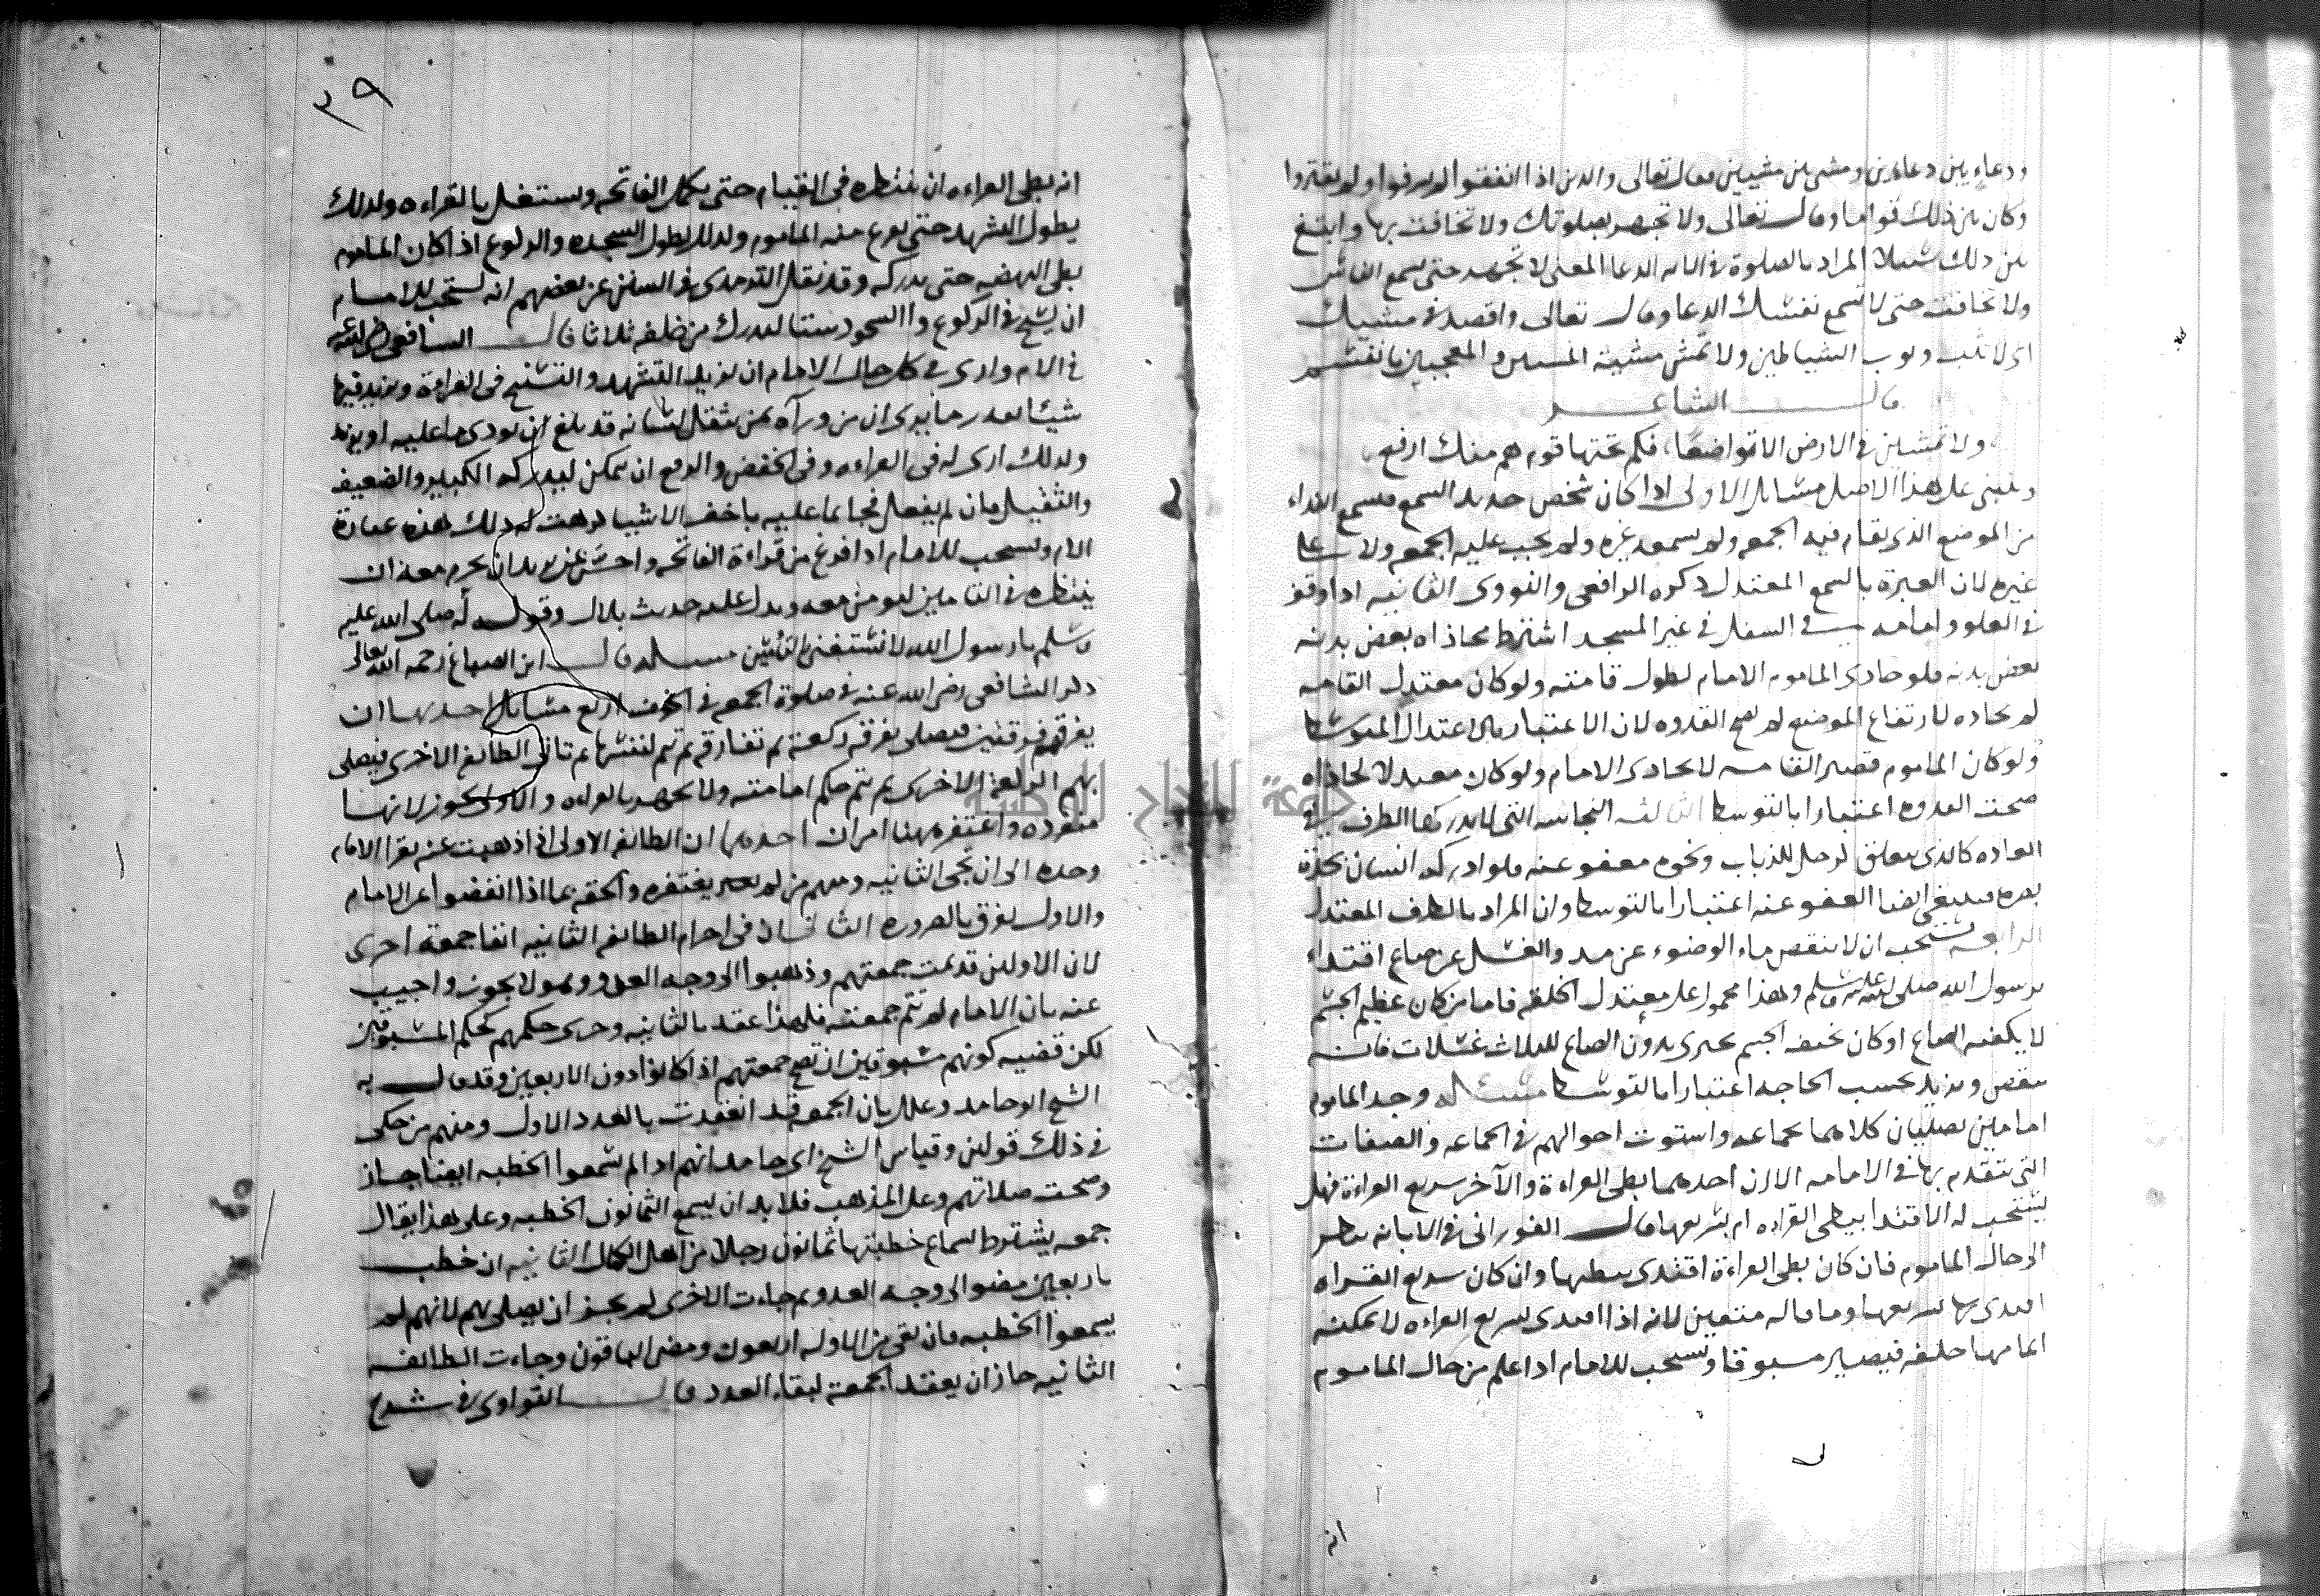 ودعاء بين دعاءين ومشى بين مشيين فقال تعالى والذين اذا انفقوا لم يسرفوا ولم يقتروا
وكان بين ذلك قواما وقال تعالى ولا تجهر بصلوتك ولا تخافت بها وابتغ
بين ذلك سبيلا المراد بالصلوة في الايه الدعا المعنى لا تجهر حتى يسمع الناس
ولا تخافت حتى لا تسمع نفسك الدعا وقال تعالى واقصد في مشيك
اى لا تثب وثوب الشياطين ولا تمش مشية المعجبين بانفسهم
قال الشاعر
ولا تمشين في الارض الا تواضعا، فكم تحتها قوم هم منك ارفع
وينبني على هذا الاصل مسايل الاولى اذا كان شخص حديد السمع فسمع النداء
من الموضع الذى تقام فيه الجمعه ولم يسمعه غيره ولم يجب عليه الجمعه ولا على
غيره لان العبرة بالسمع المعتدل ذكره الرافعى والنووى الثانيه اذا وقف
في العلو وامامه في السفل في غير المسجد اشترط محاذاه بعض بدنه
بعض بدنه فلو حاذى الماموم الامام لطول قامته ولو كان معتدل القامه
لم يحاذه لارتفاع الموضع لم تصح القدوه لان الاعتبار بالاعتدال المتوسط
ولو كان الماموم قصير القامه لا يحاذى الامام ولو كان معتدلا لحاذاه
صحت القدوه اعتبارا بالتوسط الثالثه النجاسه التى لا يدركها الطرف في
العاده كالذى يعلق لرجل الذباب ونحوه معفو عنه فلو ادركه انسان بحدة
بصره فينبغى ايضا العفو عنه اعتبارا بالتوسط وان المراد بالطرف المعتدل
الرابعه يستحب ان لا ينقص ماء الوضوء عن مد والغسل عن صاع اقتداء
برسول الله صلى الله عليه وسلم وهذا محمول على معتدل الخلقه فاما من كان عظيم الجسم
لا يكفيه الصاع او كان نحيف الجسم بحيث يجرى بدون الصاع لثلاث غسلات فانه
ينقص ويزيد بحسب الحاجه اعتبارا بالتوسط مسئله وجد الماموم
امامين يصليان كلاهما بجماعه واستوت احوالهم في الجماعه والصفات
التى تتقدم بها في الامامه الا ان احدهما بطى القراءة والآخر سريع القراءة فهل
يستحب له الاقتدا ببطى القراءه ام بسريعها قال الفورانى في الابانه ينظر
الى حال الماموم فان كان بطى القراءة اقتدى ببطيها وان كان سريع القراه
اقتدى بسريعها وما قاله متعين لانه اذا اقتدى بسريع القراءه لا يمكنه
اتمامها خلفه فيصير مسبوقا ويستحب للامام اذا علم من حال الماموم
انه
٣٩
انه بطى القراءه ان ينتظره في القيام حتى يكمل الفاتحه ويستغل بالقراءه ولذلك
يطول التشهد حتى يفرغ منه الماموم ولذلك يطول السجده والركوع اذا كان الماموم
بطى النهضه حتى يدركه وقد نقل الترمذى في السنن عن بعضهم انه يستحب للامام
ان يسبح في الركوع والسجود ستا ليدرك من خلفه ثلاثا قال الشافعى رضى الله عنه
في الام وارى في كل حال الامام ان يزيد التشهد والتسبيح في القراءة ويزيد فيها
شيئا بقدر ما يرى ان من ورآه ممن يثقل لسانه قد بلغ ان يودى ما عليه او يزيد
ولذلك ارى له في القراءه وفى الخفض والرفع ان يتمكن ليدركه الكبير والضعيف
والثقيل فان لم يفعل فجا بما عليه باخف الاشيا كرهت له ذلك هذه عبارة
الام ويستحب للامام اذا فرغ من قراءة الفاتحه واحس بمن يريد ان يحرم معه ان
ينتظره في التامين ليومن معه ويدل عليه حديث بلال وقوله له صلى الله عليه
وسلم يا رسول الله لا تسبقنى بالتأمين مسئله قال ابن الصباغ رحمه الله تعالى
ذكر الشافعى رضى الله عنه في صلوة الجمعه في الخوف اربع مسايل احديها ان
يفرقهم فرقتين فيصلى بفرقه ركعة ثم تفارقه ثم تتم لنفسها ثم تاتى الطائفه الاخرى فيصلى
بهم الركعة الاخرى ثم تتم حكم امامته ولا تجهر بالقراءه والاولى يجوز لانها
منفرده واغتفر ههنا امران احدهما ان الطائفه الاولى اذا ذهبت عنه بقى الامام
وحده الى ان تجى الثانيه ومنهم من لم يغتفره والحقه بما اذا انفضوا عن الامام
والاول يفرق بالضروره الثانى ان في احرام الطائفه الثانيه انشا جمعة اخرى
لان الاولين قد تمت جمعتهم وذهبوا الى وجه العدو وهو لا يجوز واجيب
عنه بان الامام لم تتم جمعته فلهذا عقد بالثانيه وجرى حكمهم كحكم المسبوقين
لكن قضيه كونهم مسبوقين ان تصح جمعتهم اذا كانوا دون الاربعين وقد قال به
الشيخ ابو حامد وعلله بان الجمعه قد انعقدت بالعدد الاول ومنهم من حكى
في ذلك قولين وقياس الشيخ ابى حامد انهم اذا لم يسمعوا الخطبه ايضا جاز
وصحت صلاتهم وعلى المذهب فلا بد ان يسمع الثمانون الخطبه وعلى هذا يقال
جمعه يشترط سماع خطبتها ثمانون رجلا من اهل الكمال الثانيه ان خطب
باربعين مضوا الى وجه العدو ثم جاءت الاخرى لم يجز ان يصلى بهم لانهم لم
يسمعوا الخطبه فان بقى من الاوله اربعون ومضى الباقون وجاءت الطائفه
الثانيه جاز ان يعقد الجمعة لبقاء العدد قال النواوى في شرح
جامعة النجاح الوطنية